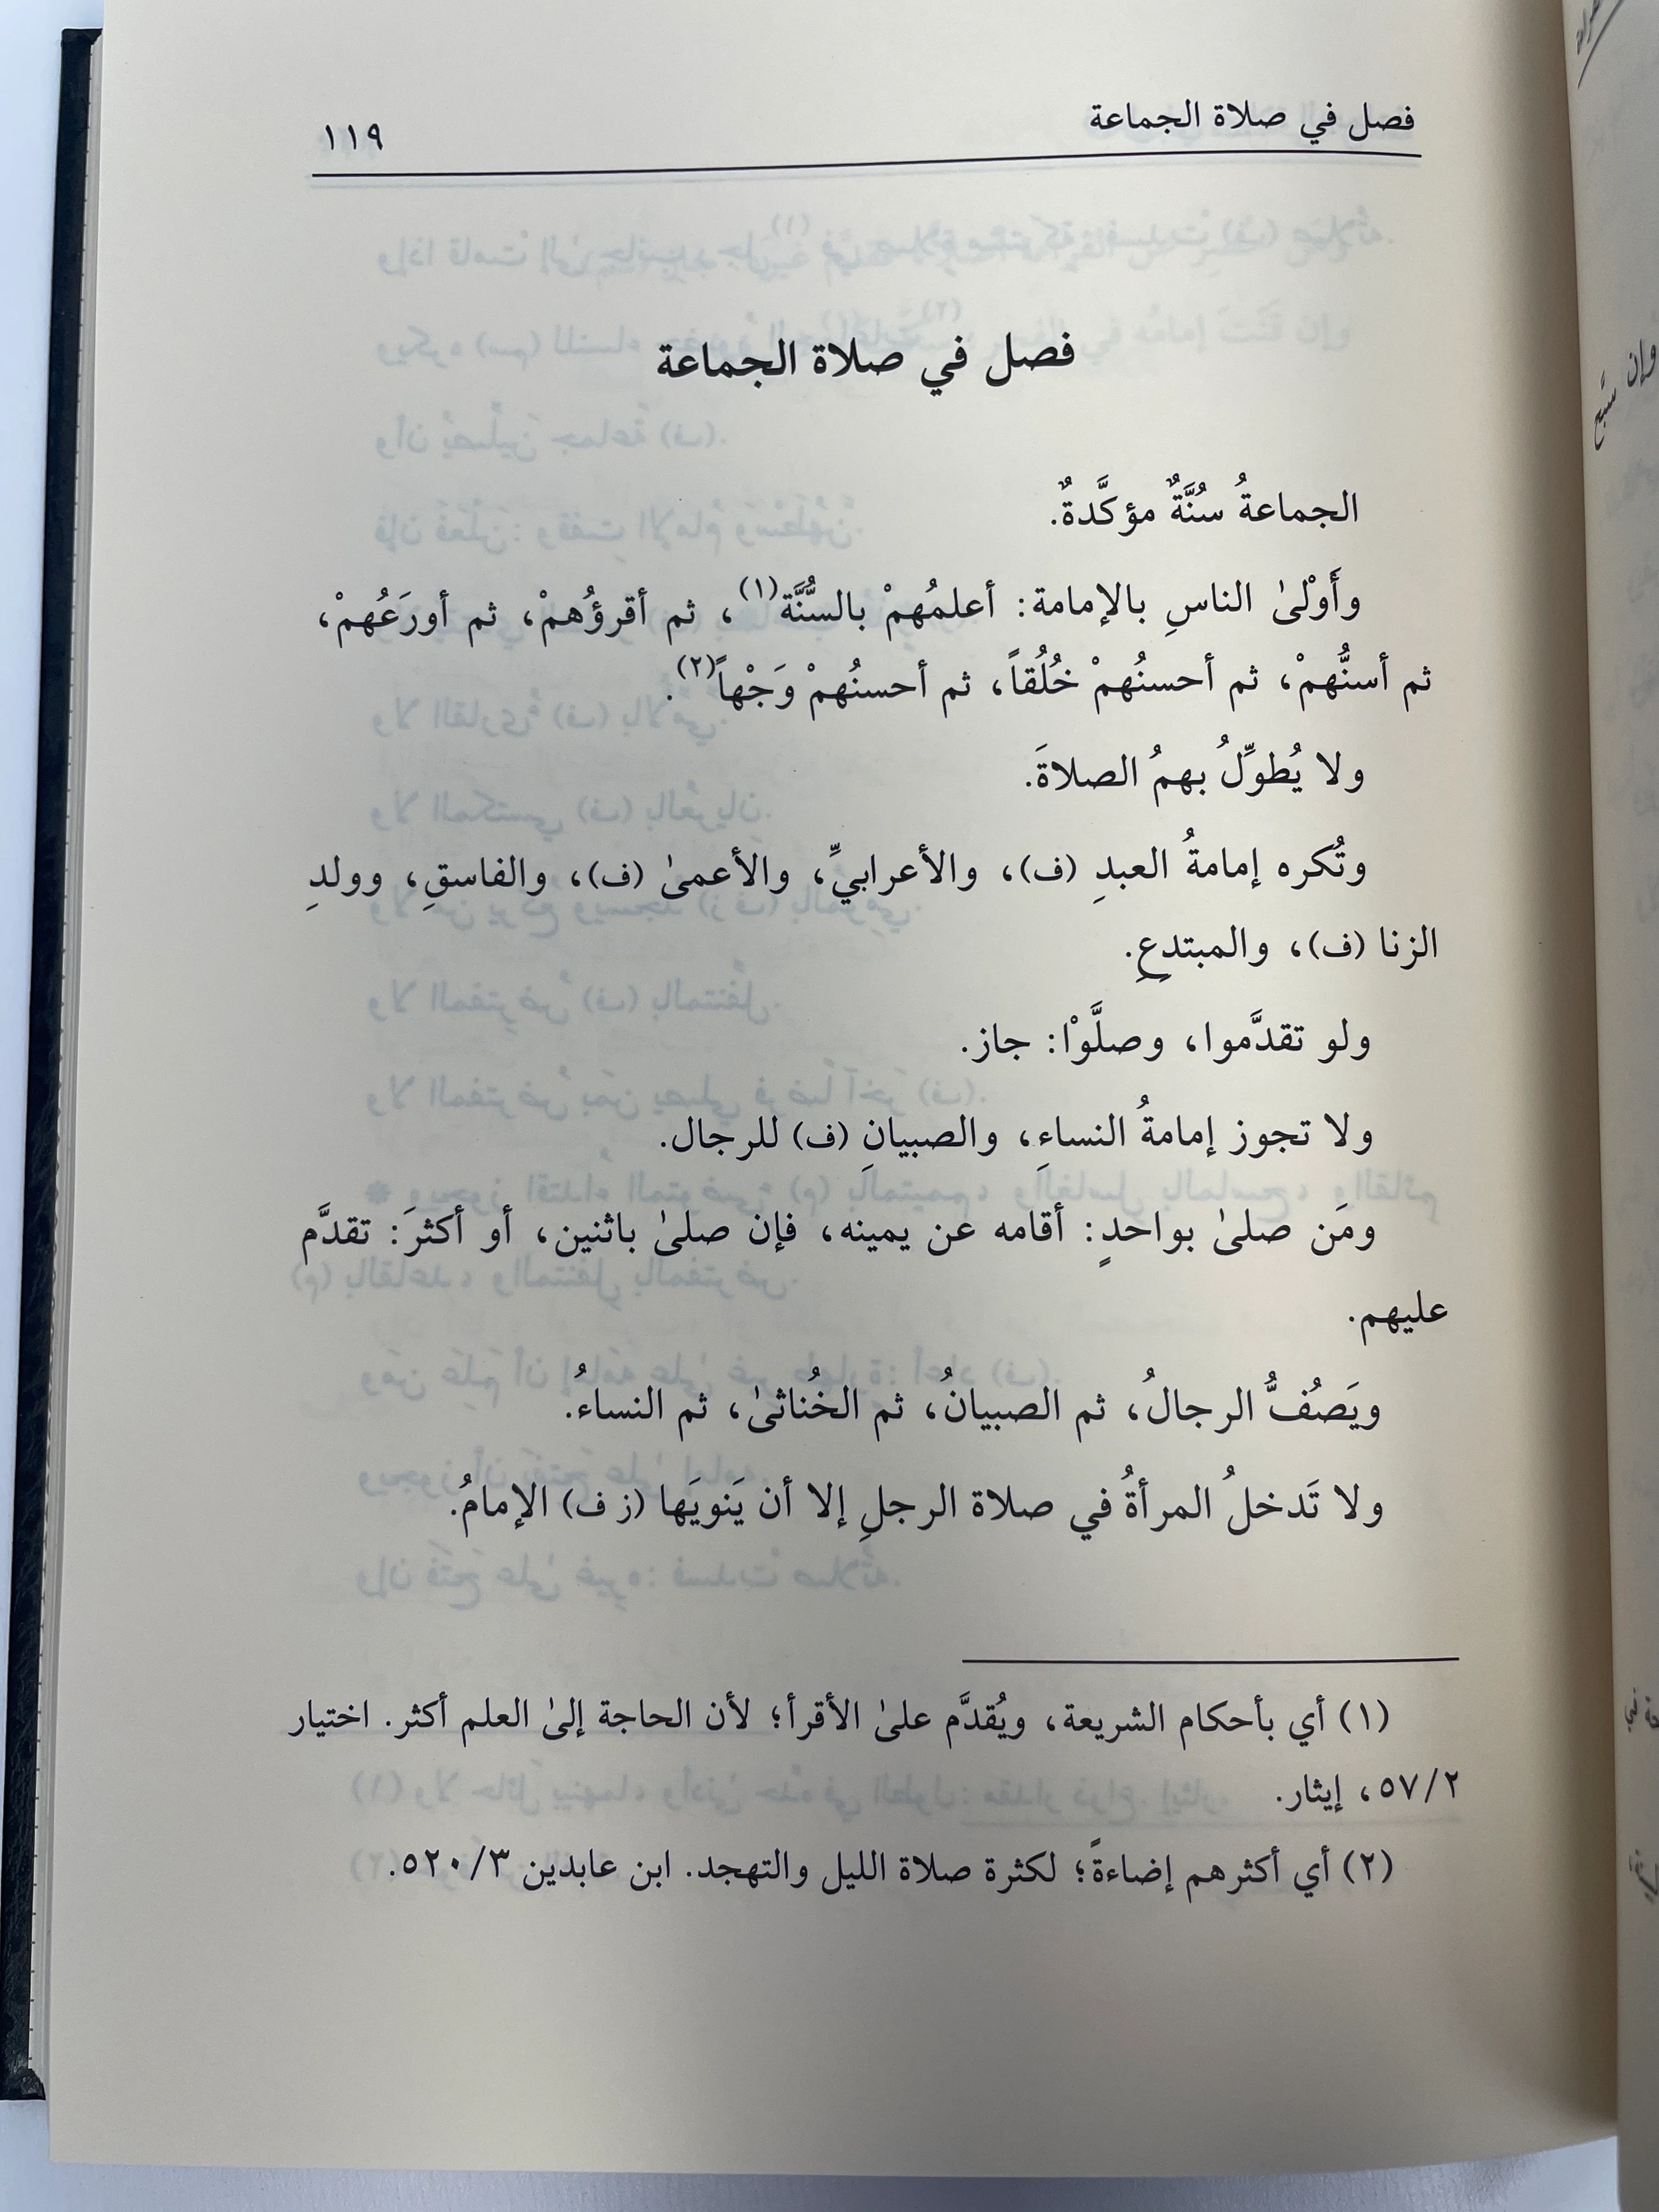 فصل في صلاة الجماعة ١١٩
فصل في صلاة الجماعة
الجماعةُ سُنَّةٌ مؤكَّدةٌ.
وأَوْلىٰ الناسِ بالإمامة: أعلمُهمْ بالسُّنَّة(١)، ثم أقرؤُهمْ، ثم أورَعُهمْ،
ثم أسنُّهمْ، ثم أحسنُهمْ خُلُقاً، ثم أحسنُهمْ وَجْهاً(٢).
ولا يُطوِّلُ بهمُ الصلاةَ.
وتُكره إمامةُ العبدِ (ف)، والأعرابيِّ، والأعمىٰ (ف)، والفاسقِ، وولدِ
الزنا (ف)، والمبتدعِ.
ولو تقدَّموا، وصلَّوْا: جاز.
ولا تجوز إمامةُ النساءِ، والصبيانِ (ف) للرجال.
ومَن صلىٰ بواحدٍ: أقامه عن يمينه، فإن صلىٰ باثنين، أو أكثرَ: تقدَّم
عليهم.
ويَصُفُّ الرجالُ، ثم الصبيانُ، ثم الخُناثىٰ، ثم النساءُ.
ولا تَدخلُ المرأةُ في صلاة الرجلِ إلا أن يَنويَها (ز ف) الإمامُ.
(١) أي بأحكام الشريعة، ويُقدَّم علىٰ الأقرأ؛ لأن الحاجة إلىٰ العلم أكثر. اختيار
٥٧/٢، إيثار.
(٢) أي أكثرهم إضاءةً؛ لكثرة صلاة الليل والتهجد. ابن عابدين ٥٢٠/٣.